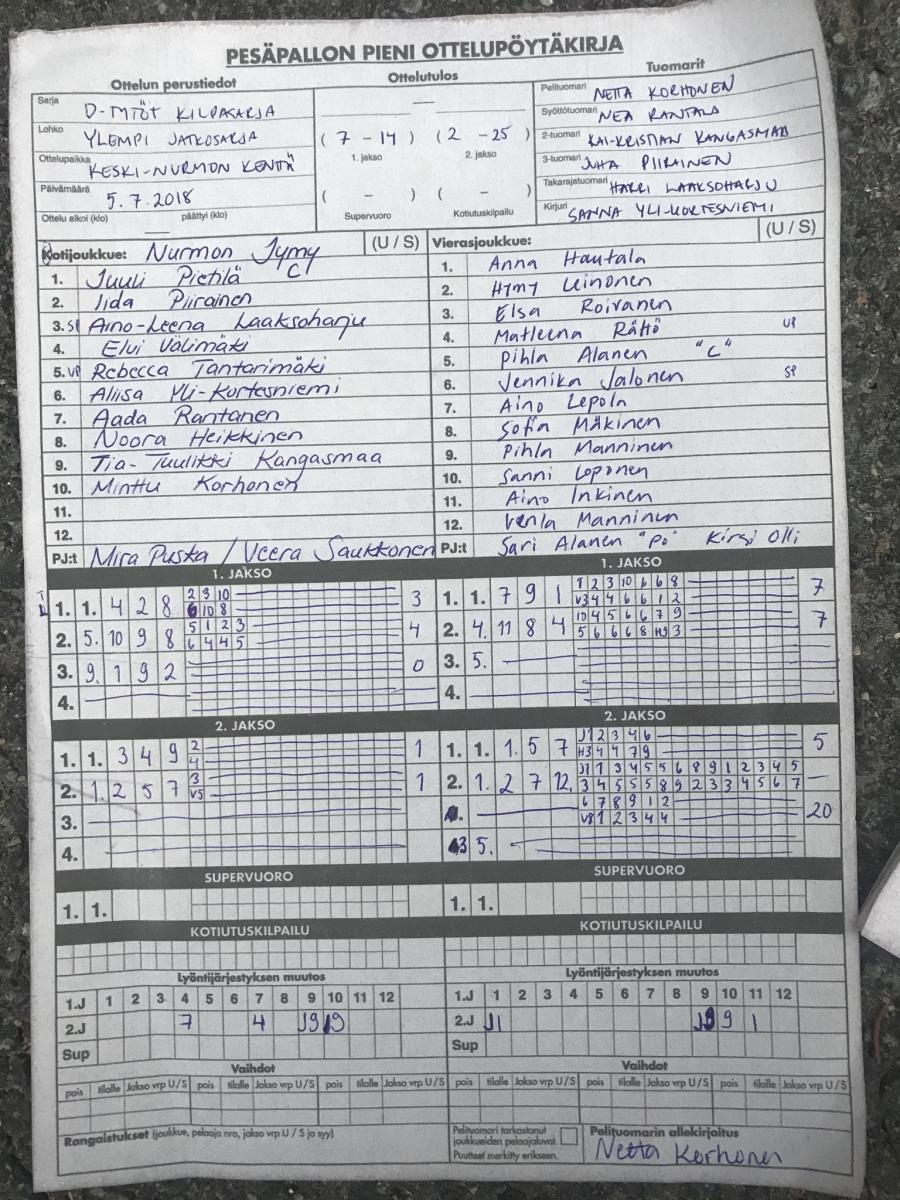 PESÄPALLON PIENI OTTELUPÖYTÄKIRJA
Ottelun perustiedot
Sarja D-TYTÖT KILPASARJA
Lohko YLEMPI JATKOSARJA
Ottelupaikka KESKI-NURMON KENTÄ
Päivämäärä 5.7.2018
Ottelu alkoi (klo) päättyi (klo)
Ottelutulos
—
( 7 - 14 ) ( 2 - 25 )
1. jakso 2. jakso
( - ) ( - )
Supervuoro Kotiutuskilpailu
Tuomarit
Pelituomari NETTA KORHONEN
Syöttötuomari NEA RANTALA
2-tuomari KAI-KRISTIAN KANGASMAA
3-tuomari JUHA PIIRAINEN
Takarajatuomari HARRI LAAKSOHARJU
Kirjuri SANNA YLI-KORTESNIEMI
Kotijoukkue: Nurmon Jymy (U / S)
1. Juuli Pietilä C
2. Iida Piirainen
3. SP Aino-Leena Laaksoharju
4. Elvi Välimäki
5. VP Rebecca Tantarimäki
6. Aliisa Yli-Kortesniemi
7. Aada Rantanen
8. Noora Heikkinen
9. Tia-Tuulikki Kangasmaa
10. Minttu Korhonen
11.
12.
PJ:t Mira Puska / Veera Saukkonen
Vierasjoukkue: (U / S)
1. Anna Hautala
2. Hymy Leinonen
3. Elsa Roivanen
4. Matleena Rättö VP
5. Pihla Alanen "C"
6. Jennika Jalonen SP
7. Aino Lepola
8. Sofia Mäkinen
9. Pihla Manninen
10. Sanni Loponen
11. Aino Inkinen
12. Venla Manninen
PJ:t Sari Alanen "PJ" Kirsi Olli
1. JAKSO
2 3 10
1. 1. 4 2 8 6 10 8 3
5 1 2 3
2. 5. 10 9 8 6 4 4 5 4
3. 9. 1 9 2 0
4.
1. JAKSO
1 2 3 10 6 6 8
1. 1. 7 9 1 V3 4 4 6 6 1 2 7
10 4 5 6 6 7 9
2. 4. 11 8 4 5 6 6 6 8 H9 3 7
3. 5.
4.
2. JAKSO
2
1. 1. 3 4 9 4 1
3
2. 1. 2 5 7 V5 1
3.
4.
2. JAKSO
J1 2 3 4 6
1. 1. 1. 5 7 H3 4 4 7 9 5
J1 1 3 4 5 5 6 8 9 1 2 3 4 5
2. 1. 2 7 12. 3 4 5 5 5 8 9 2 3 3 4 5 6 7 —
6 7 8 9 1 2
V8 1 2 3 4 4 20
3 5.
SUPERVUORO
1. 1.
SUPERVUORO
1. 1.
KOTIUTUSKILPAILU
KOTIUTUSKILPAILU
Lyöntijärjestyksen muutos
1.J 1 2 3 4 5 6 7 8 9 10 11 12
2.J 7 4 J9 9
Sup
Lyöntijärjestyksen muutos
1.J 1 2 3 4 5 6 7 8 9 10 11 12
2.J J1 9 1
Sup
Vaihdot
pois tilalle Jakso vrp U/S pois tilalle Jakso vrp U/S pois tilalle Jakso vrp U/S
Vaihdot
pois tilalle Jakso vrp U/S pois tilalle Jakso vrp U/S pois tilalle Jakso vrp U/S
Rangaistukset (joukkue, pelaaja nro, jakso vrp U / S ja syy)
Pelituomari tarkastanut
joukkueiden pelaajaluvat.
Puutteet merkitty erikseen.
Pelituomarin allekirjoitus
Netta Korhonen